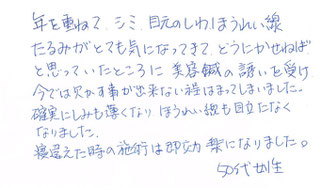 年を重ねて、シミ、目元のしわ、ほうれい線
たるみがとても気になってきて、どうにかせねば
と思っていたところに美容鍼の誘いを受け
今では欠かす事が出来ない程はまってしまいました。
確実にしみも薄くなり、ほうれい線も目立たなく
なりました。
寝違えた時の施術は即効 楽になりました。
50代女性